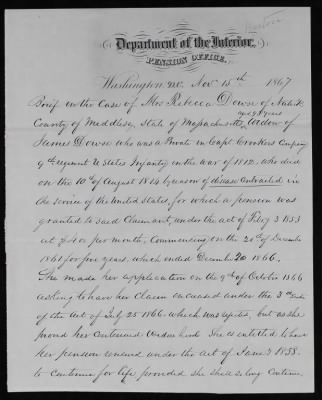 Department of the Interior,
PENSION OFFICE,
Washington D.C. Nov 15th 1867
Brief in the Case of Mrs Rebecca Down of Natick
County of Middlesex, State of Massachusetts, Widow of
James Down who was a Private in Capt Crookers Company
9th regiment U States Infantry in the war of 1812, who died
on the 10th of August 1814 by reason of disease contracted in
the service of the United States, for which a pension was
granted to said Claimant, under the act of Feby 3 1853
at per month, Commencing on the 20th of December
1861 for five years, which ended Decemb. 20 1866.
She made her application on the 9th of October 1866
asking to have her claim increased under the 3rd
of the Act of July 25 1866. which was rejected, but as she
proved her continued Widowhood She is entitled to have
her pension renewed under the act of June 3 1858.
to continue for life provided she shall so long continue